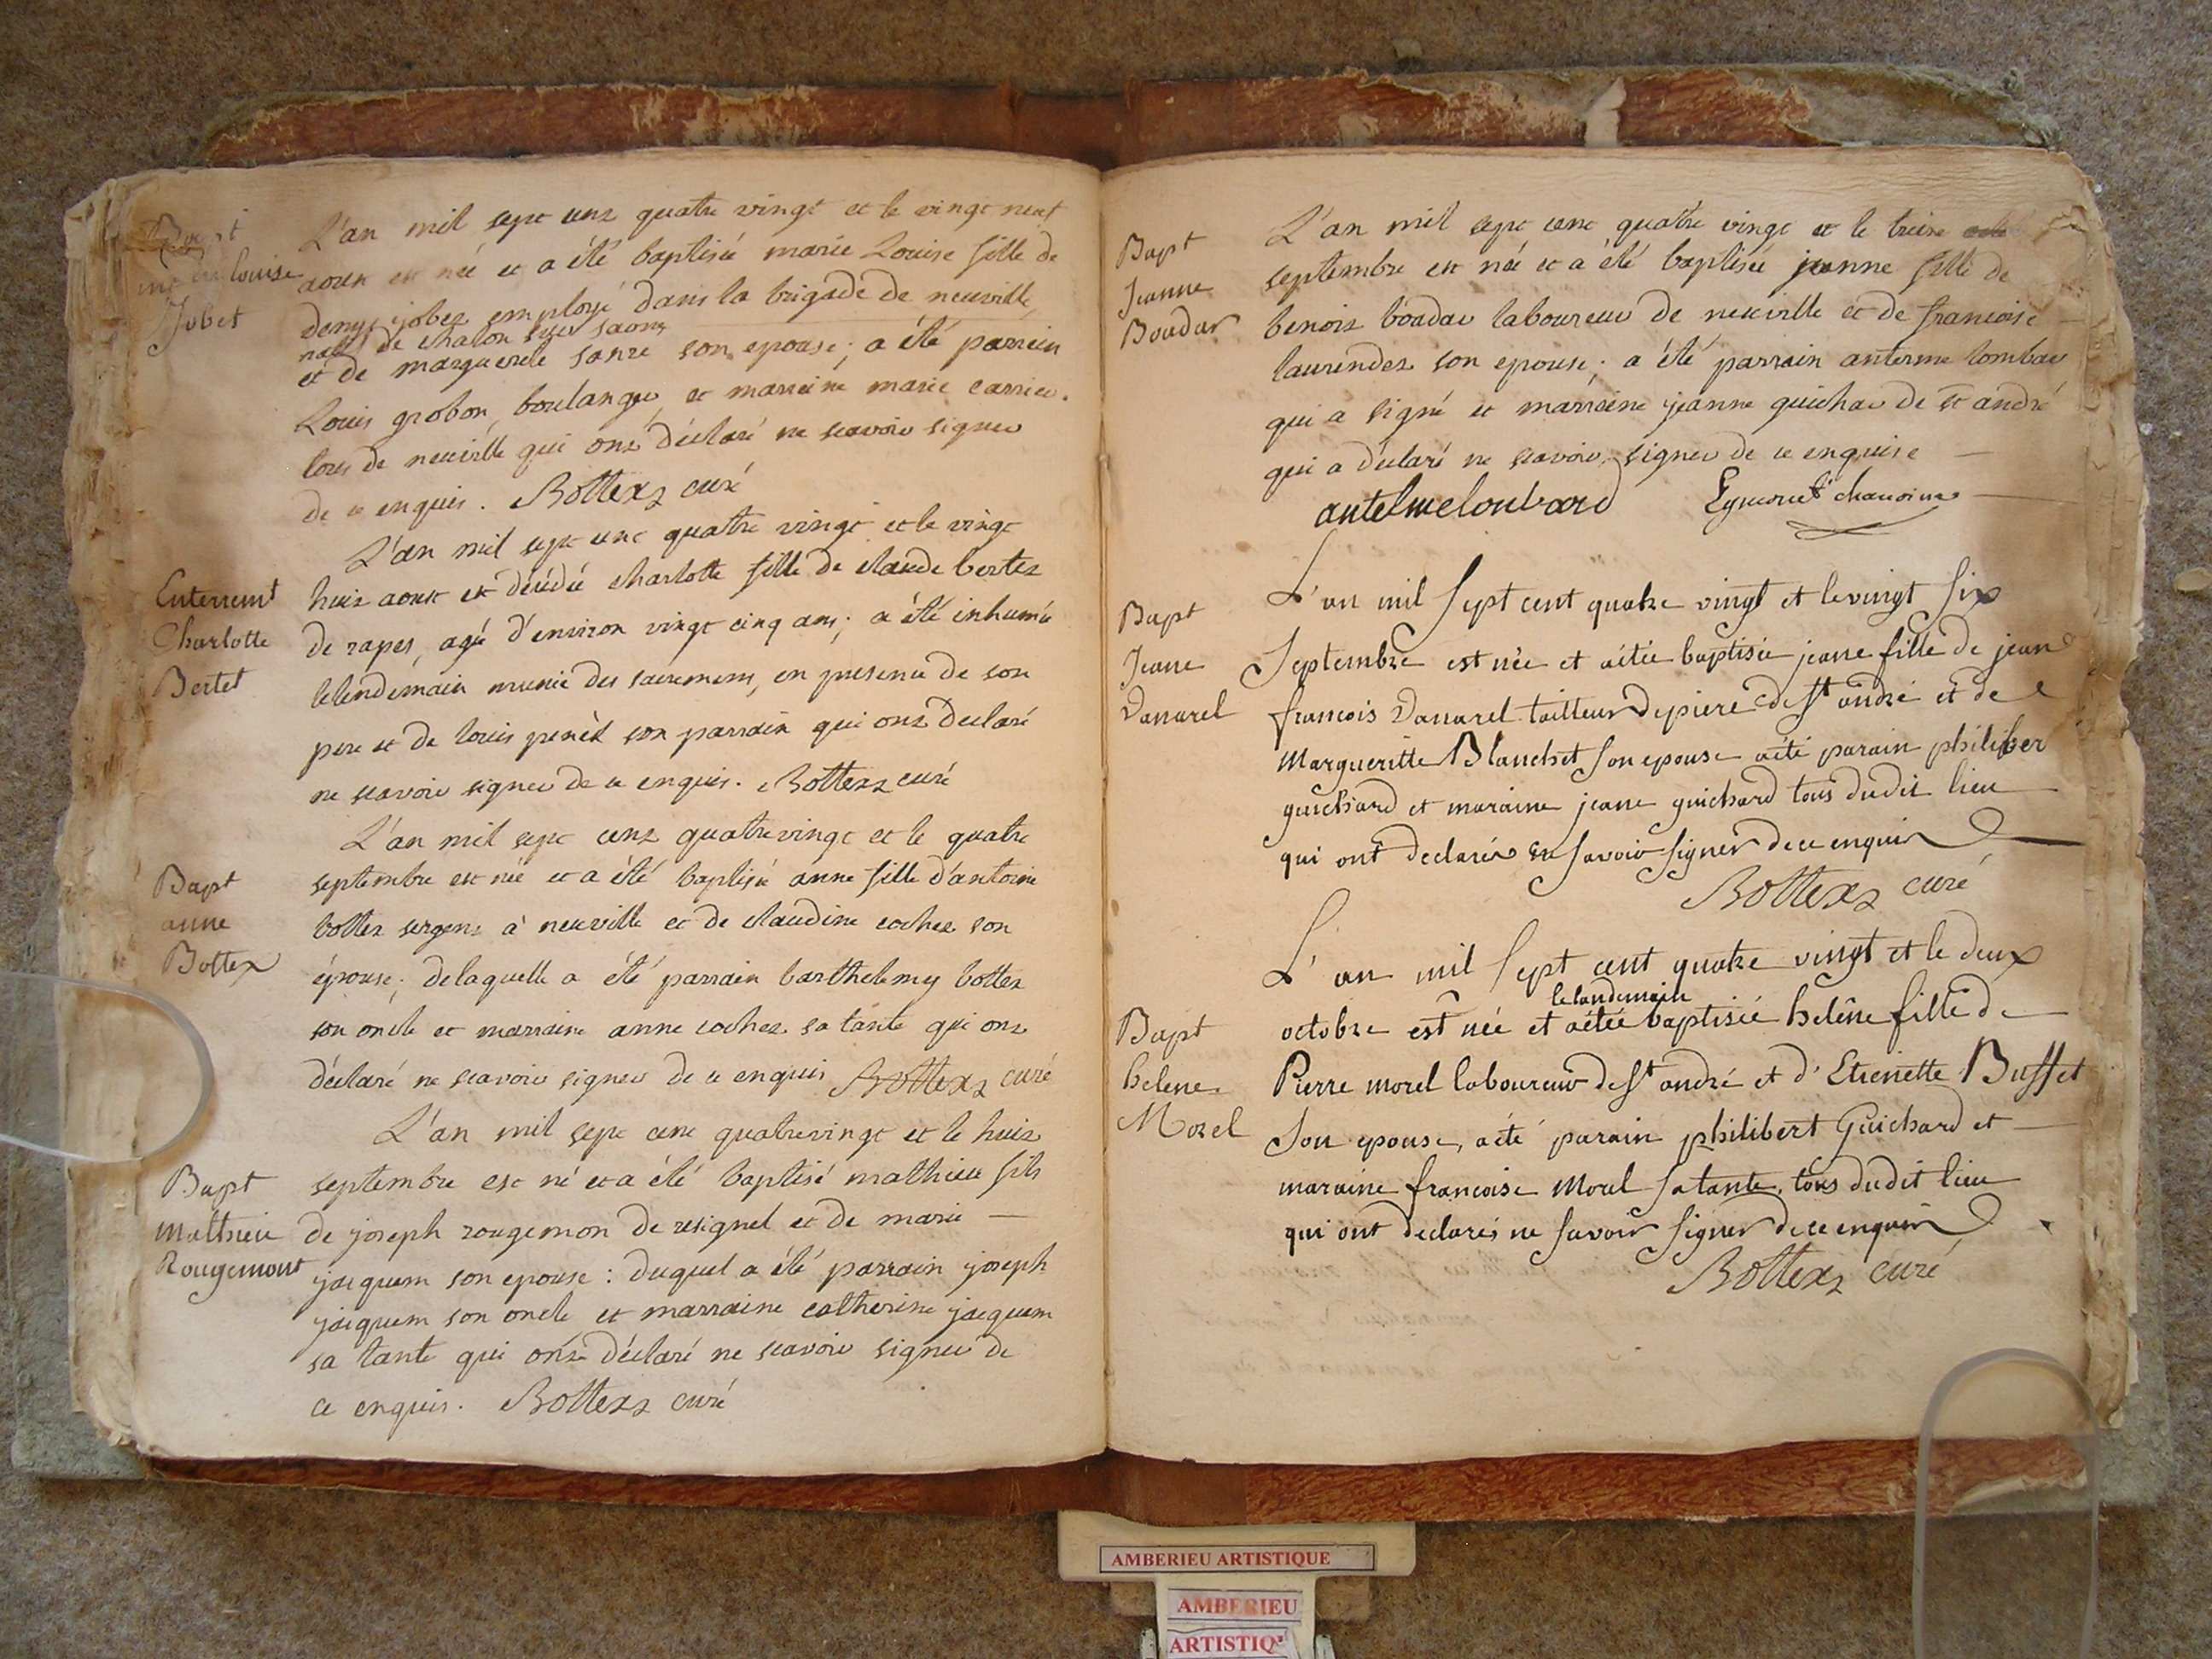 Bapt
marie louise
Jobet
L'an mil sept cent quatre vingt et le vingt neuf
aoust est née et a été baptisée marie Louise fille de
denys jobez employé dans la brigade de neuville
natif de chalon sur saone
et de marguerite sanze son epouse; a été parrein
Louis grobon, boulanger, et marreine marie carrier.
tous de neuville qui ont déclaré ne scavoir signer
de ce enquis. Bottex curé
Enterremt
Charlotte
Bertet
L'an mil sept cent quatre vingt et le vingt
huit aoust est décédée charlotte fille de claude bertet
de rapes, agée d'environ vingt cinq ans; a été inhumée
le lendemain munie des sacremens, en presence de son
pere et de louis son parrain qui ont declaré
ne scavoir signer de ce enquis. Bottex curé
Bapt
anne
Bottex
L'an mil sept cent quatrevingt et le quatre
septembre est née et a été baptisée anne fille d'antoine
bottex sergent à neuville et de claudine cochet son
épouse; de laquelle a été parrain barthelemy bottex
son oncle et marraine anne cochet sa tante qui ont
déclaré ne scavoir signer de ce enquis Bottex curé
Bapt
Mathieu
Rougemont
L'an mil sept cent quatrevingt et le huit
septembre est né et a été baptisé mathieu fils
de joseph rougemon de resignel et de marie
jacquem son epouse: duquel a été parrain joseph
jacquem son oncle et marraine catherine jacquem
sa tante qui ont déclaré ne scavoir signer de
ce enquis. Bottex curé
Bapt
Jeanne
Boudar
L'an mil sept cent quatre vingt et le treize
septembre est née et a été baptisée jeanne fille de
benoit boudar laboureur de neuville et de francoise
laurendet son epouse; a été parrain antelme lombar
qui a signé et marraine jeanne guichar de st andré
qui a déclaré ne scavoir signer de ce enquise
antelmelonbard chanoine
Bapt
Jeane
Danarel
L'an mil sept cent quatre vingt et le vingt six
Septembre est née et aétée baptisée jeane fille de jean
francois Danarel tailleur de piere de st andré et de
Margueritte Blanchet son epouse aété parain philiber
guichard et maraine jeane guichard tous dudit lieu
qui ont declarés ne savoir signer de ce enquis
Bottex curé
Bapt
helene
Morel
L'an mil sept cent quatre vingt et le deux
le landemain
octobre est née et aétée baptisée helêne fille de
Pierre morel laboureur de st andré et d'Etienette Buffet
son epouse, aété parain philibert Guichard et
maraine francoise Morel sa tante, tous dudit lieu
qui ont declarés ne savoir signer de ce enquis
Bottex curé
AMBERIEU ARTISTIQUE
AMBERIEU
ARTISTIQ